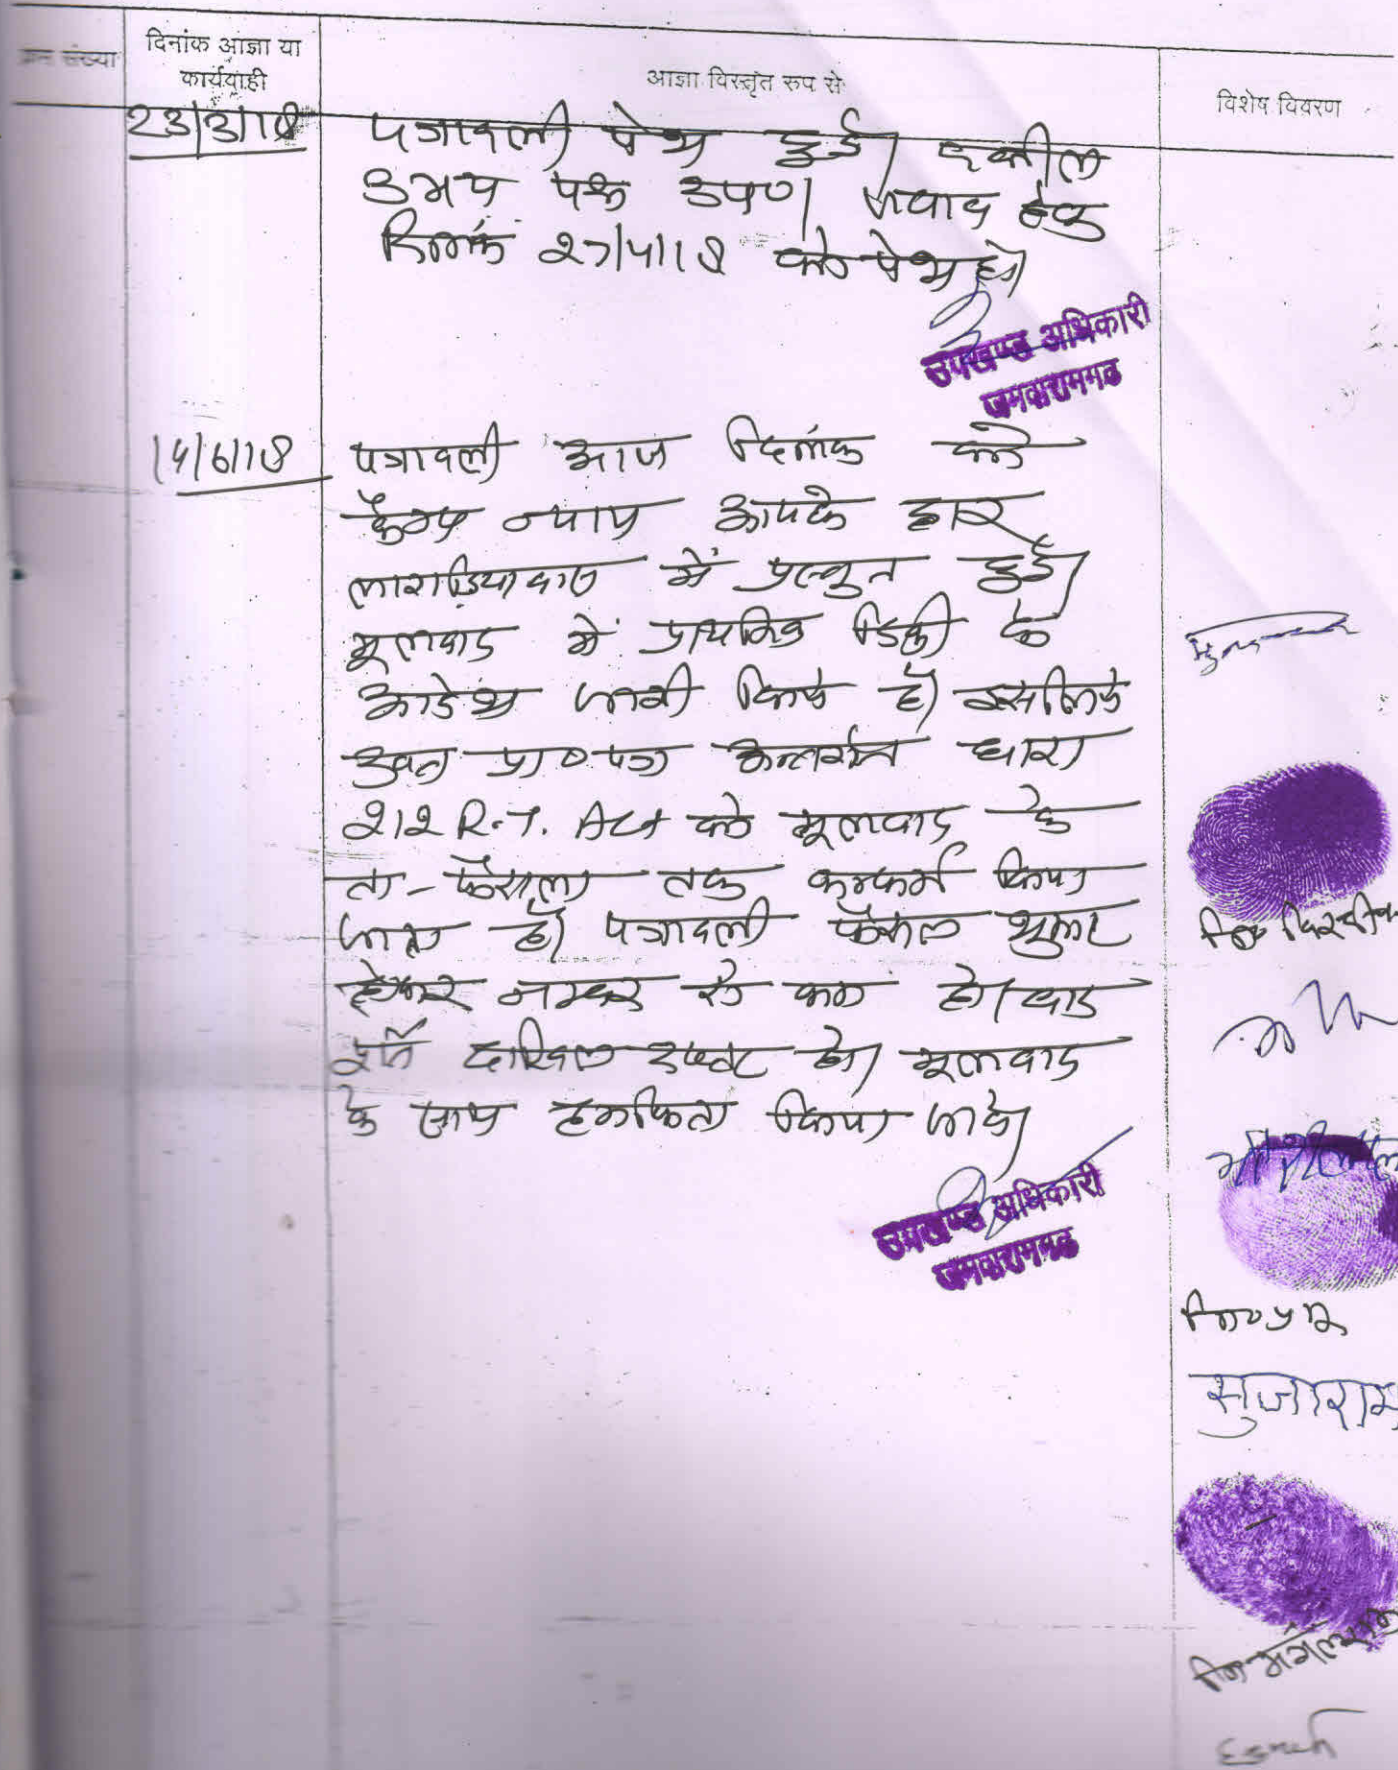 संख्या
दिनांक आज्ञा या
कार्यवाही
आज्ञा विस्तृत रूप से
विशेष विवरण
23/3/18
पत्रावली पेश हुई। वकील
उभय पक्ष उप०। जवाब हेतु
दिनांक 27/4/18 को पेश हो।
उपखण्ड अधिकारी
जमवारामगढ
14/6/18
पत्रावली आज दिनांक को
कैम्प न्याय आपके द्वार
में प्रस्तुत हुई।
मूलवाद में प्राथमिक डिक्री के
आदेश जारी किये है। इसलिये
उक्त प्रा० पत्र अन्तर्गत धारा
212 R.T. Act को मूलवाद के
ता-फैसला तक कन्फर्म किया
जाता है। पत्रावली फैसल शुमार
होकर नम्बर से कम हो। वाद
पूर्ति दाखिल दफ्तर हो। मूलवाद
के साथ हमफिता किया जावे।
उपखण्ड अधिकारी
जमवारामगढ
सुजाराम